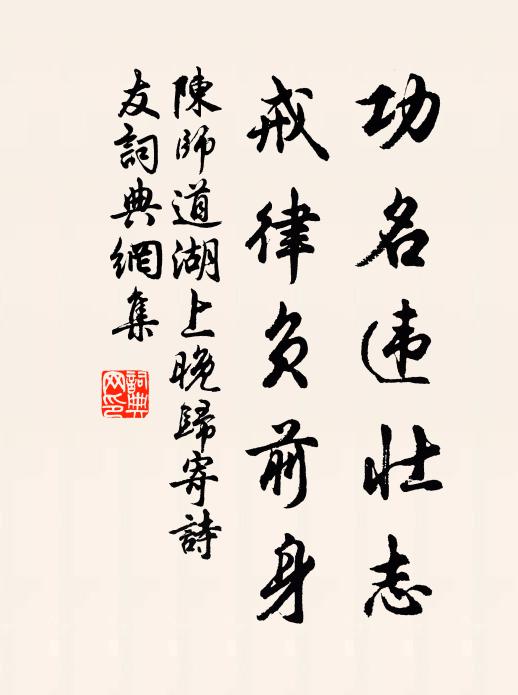 功名违壮志
戒律负前身
陳師道湖上晚歸寄詩
友詞典網集
詞典
网印